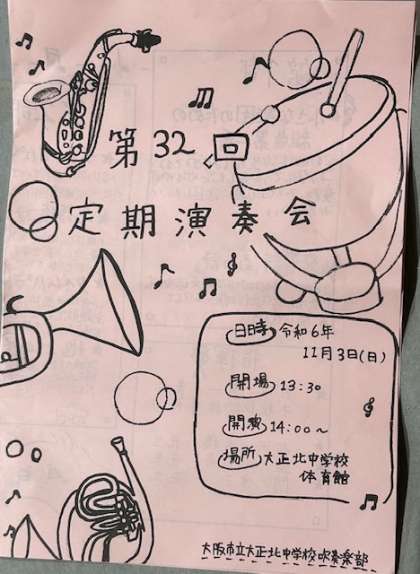 第32回
定期演奏会
日時 令和6年
11月3日(日)
開場 13:30
開演 14:00~
場所 大正北中学校
体育館
大阪市立大正北中学校吹奏楽部